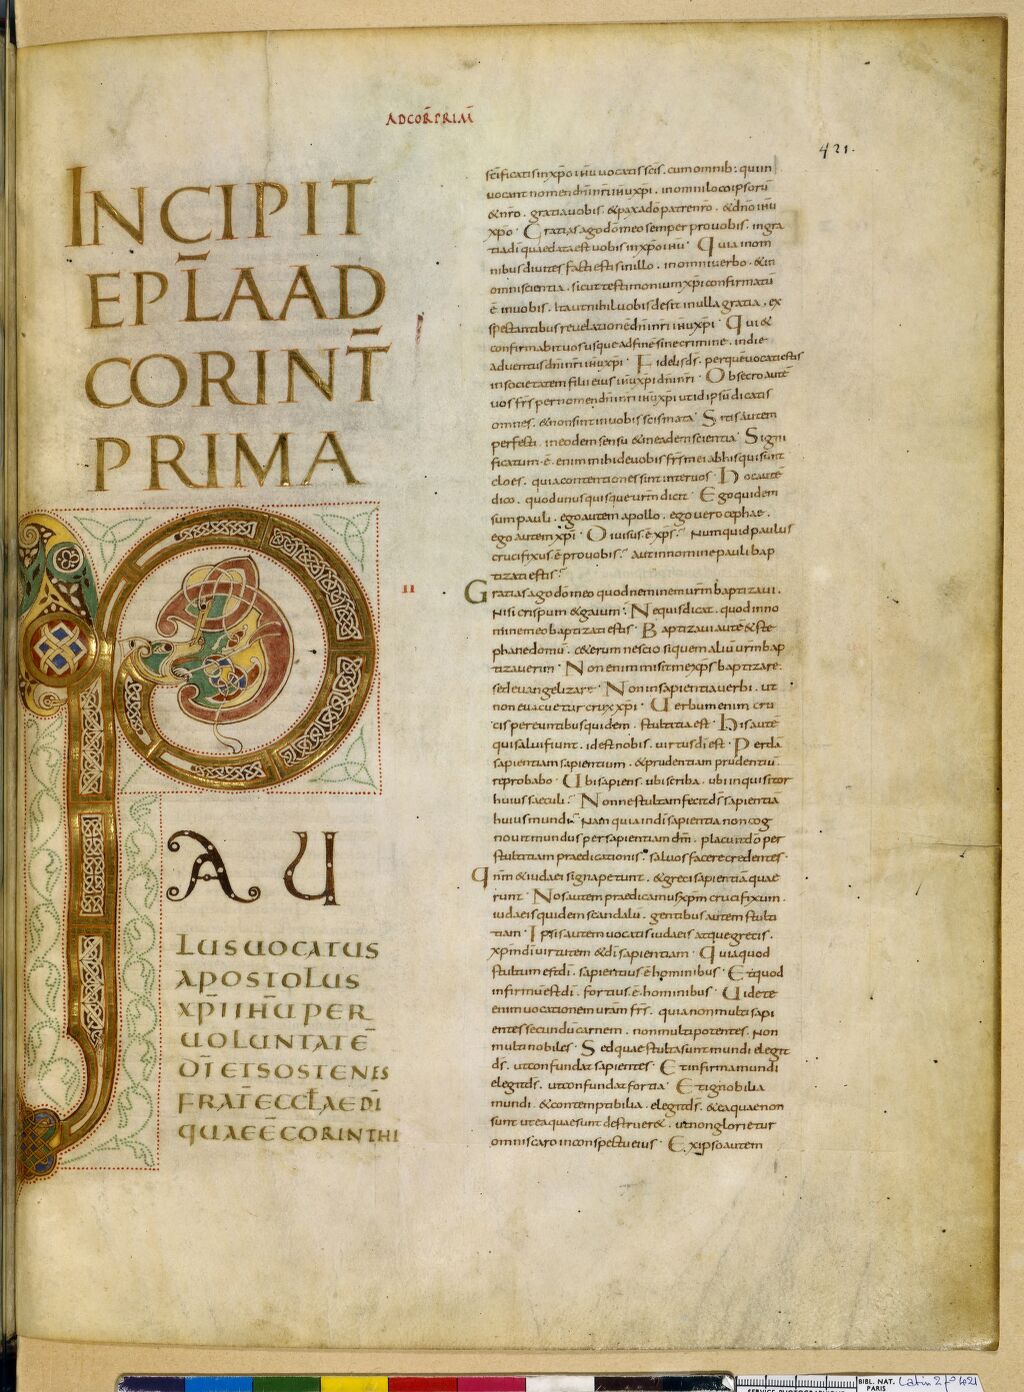 AD COR̄ PRIM̄
421.
INCIPIT
EPL̄A AD
CORINT̄
PRIMA
P
AU
LUS UOCATUS
APOSTOLUS
XP̄I IH̄U PER
UOLUNTATĒ
DĪ ET SOSTENES
FRAT̄ ECCL̄AE DĪ
QUAE Ē CORINTHI
sc̄ificatis in xp̄o ihū uocatis sc̄is. cum omnib: qui in
uocant nomen dn̄i nr̄i ihū xp̄i. in omni loco ipsorū
& nr̄o. gratia uobis. & pax a dō patre nr̄o. & dn̄o ihū
xp̄o. Gratias ago dō meo semper pro uobis. in gra
tia dī quae data est uobis in xp̄o ihū. Quia in om
nibus diuites facti estis in illo. in omni uerbo. & in
omni scientia. sicut testimonium xp̄i confirmatū
ē in uobis. Ita ut nihil uobis desit in ulla gratia. ex
spectantibus reuelationē dn̄i nr̄i ihū xp̄i. Qui &
confirmabit uos usque ad finē sine crimine. in die
aduentus dn̄i nr̄i ihū xp̄i. Fidelis ds̄. per quē uocati estis
in societatem filii eius ihū xp̄i dn̄i nr̄i. Obsecro autē
uos fr̄s per nomen dn̄i nr̄i ihū xp̄i ut id ipsū dicatis
omnes. & non sint in uobis scismata. Sitis autem
perfecti. in eodem sensu & in eadem scientia. Signi
ficatum. ē. enim mihi de uobis fr̄s mei ab his qui sunt
cloes. quia contentiones sunt inter uos. Hoc autē
dico. quod unusquisque ur̄m dicit. Ego quidem
sum pauli. ego autem apollo. ego uero cephae.
ego autem xp̄i. Diuisus. ē xp̄s? Numquid paulus
crucifixus. ē pro uobis? aut in nomine pauli bap
tizati estis?
II
Gratias ago dō meo quod neminem ur̄m baptizaui.
Nisi crispum & gaium. Nequis dicat. quod in no
mine meo baptizati estis. Baptizaui autē & ste
phane domū. ceterum nescio si quem aliū ur̄m bap
tizauerim. Non enim misit me xp̄s baptizare.
sed euangelizare. Non in sapientia uerbi. ut
non euacuetur crux xp̄i. Uerbum enim cru
cis pereuntibus quidem. stultitia est. His autē
qui salui fiunt. id est nobis. uirtus dī est. Perdā
sapientiam sapientium. & prudentiam prudentiū
reprobabo. Ubi sapiens. ubi scriba. ubi inquisitor
huius saeculi? Nonne stultam fecit ds̄ sapientiā
huius mundi? Nam quia in dī sapientia non cog
nouit mundus per sapientiam dm̄. placuit dō per
stultitiam praedicationis. saluos facere credentes.
Qn̄m & iudaei signa petunt. & greci sapientiā quae
runt. Nos autem praedicamus xp̄m crucifixum.
iudaeis quidem scandalū. gentibus autem stulti
tiam. Ipsis autem uocatis iudaeis atque grecis.
xp̄m dī uirtutem & dī sapientiam. Quia quod
stultum est dī. sapientius ē hominibus. Et quod
infirmū est dī. fortius. ē. hominibus. Uidete
enim uocationem ur̄am fr̄s. quia non multi sapi
entes secundū carnem. non multi potentes. Non
multi nobiles. Sed quae stulta sunt mundi elegit
ds̄. ut confundat sapientes. Et infirma mundi
elegit ds̄. ut confundat fortia. Et ignobilia
mundi. & contemptibilia. elegit ds̄. & ea quae non
sunt ut ea quae sunt destruer&. ut non glorietur
omnis caro in conspectu eius. Ex ipso autem
BIBL. NAT.
PARIS
Latin 2 fº 421